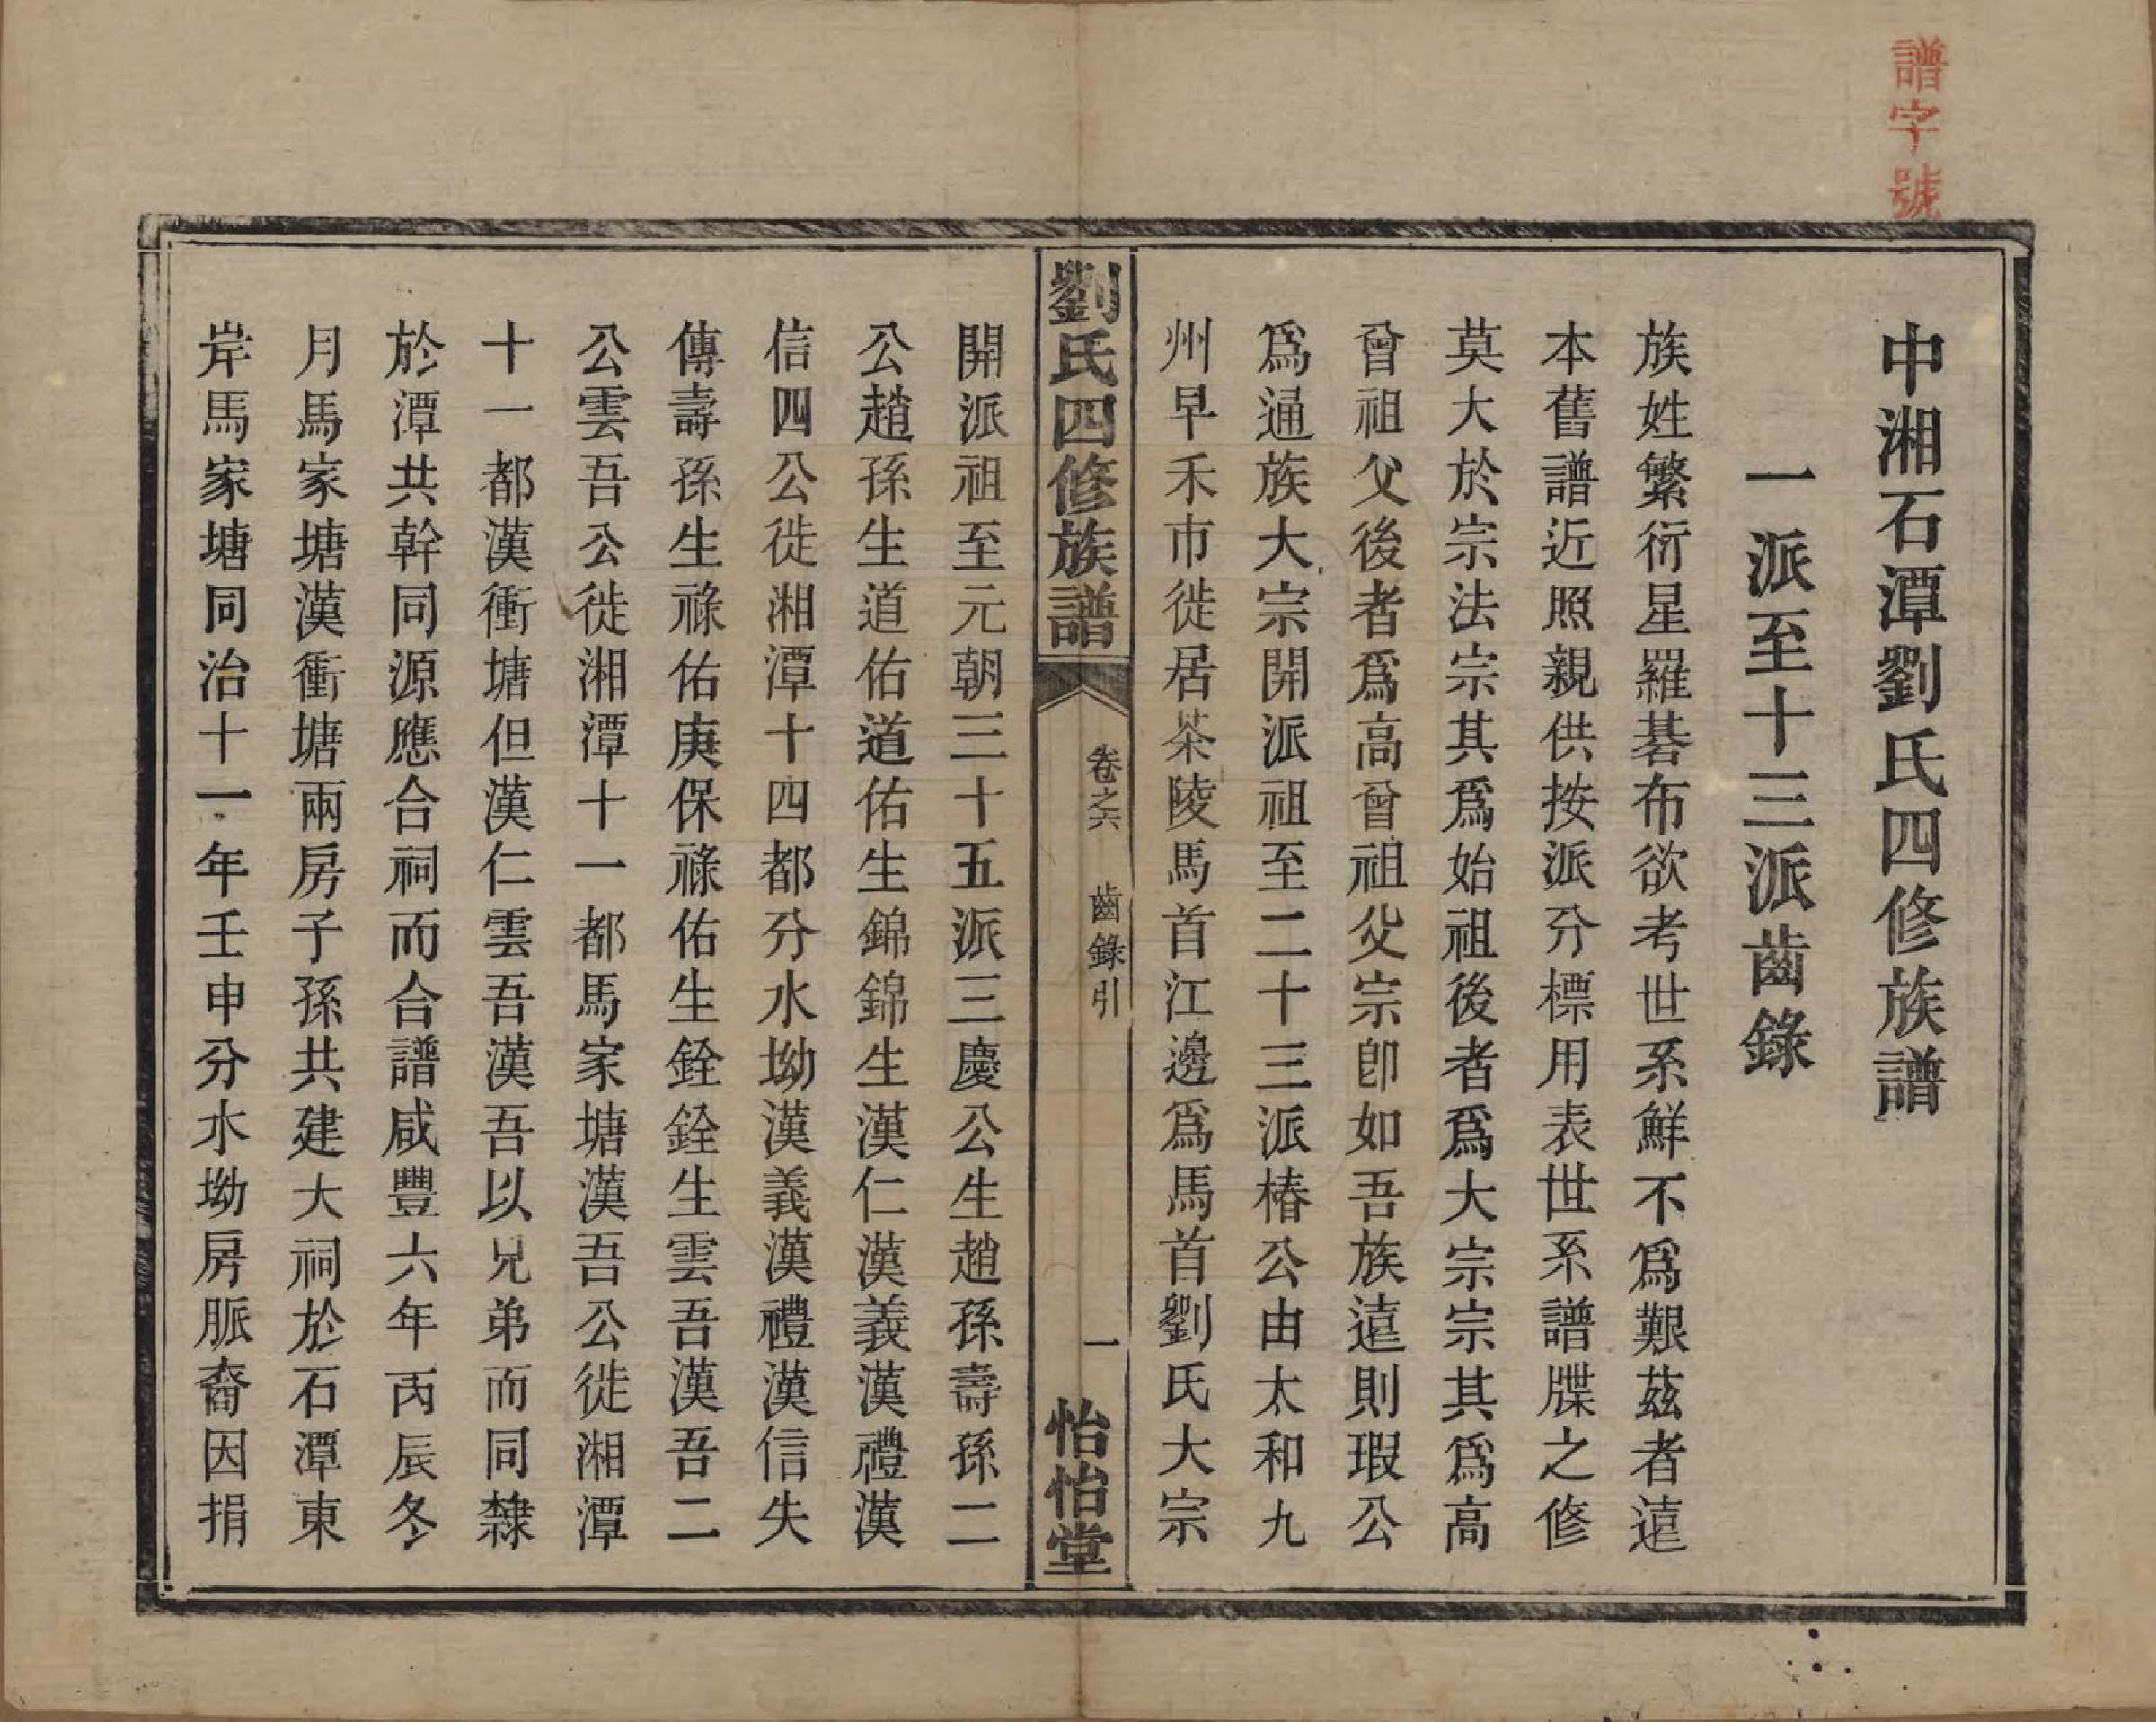 譜字號
中湘石潭劉氏四修族譜
一派至十三派齒錄
族姓繁衍星羅碁布欲考世系鮮不爲艱茲者遠
本舊譜近照親供按派分標用表世系譜牒之修
莫大於宗法宗其爲始祖後者爲大宗宗其爲高
曾祖父後者爲高曾祖父宗卽如吾族遠則瑕公
爲通族大宗開派祖至二十三派椿公由太和九
州早禾市徙居茶陵馬首江邊爲馬首劉氏大宗
劉氏四修族譜
卷之六
齒錄引
一
怡怡堂
開派祖至元朝三十五派三慶公生趙孫壽孫二
公趙孫生道佑道佑生錦錦生漢仁漢義漢禮漢
信四公徙湘潭十四都分水坳漢義漢禮漢信失
傳壽孫生祿佑庚保祿佑生銓銓生雲吾漢吾二
公雲吾公徙湘潭十一都馬家塘漢吾公徙湘潭
十一都漢衝塘但漢仁雲吾漢吾以兄弟而同隸
於潭共幹同源應合祠而合譜咸豐六年丙辰冬
月馬家塘漢衝塘兩房子孫共建大祠於石潭東
岸馬家塘同治十一年壬申分水坳房脈裔因捐